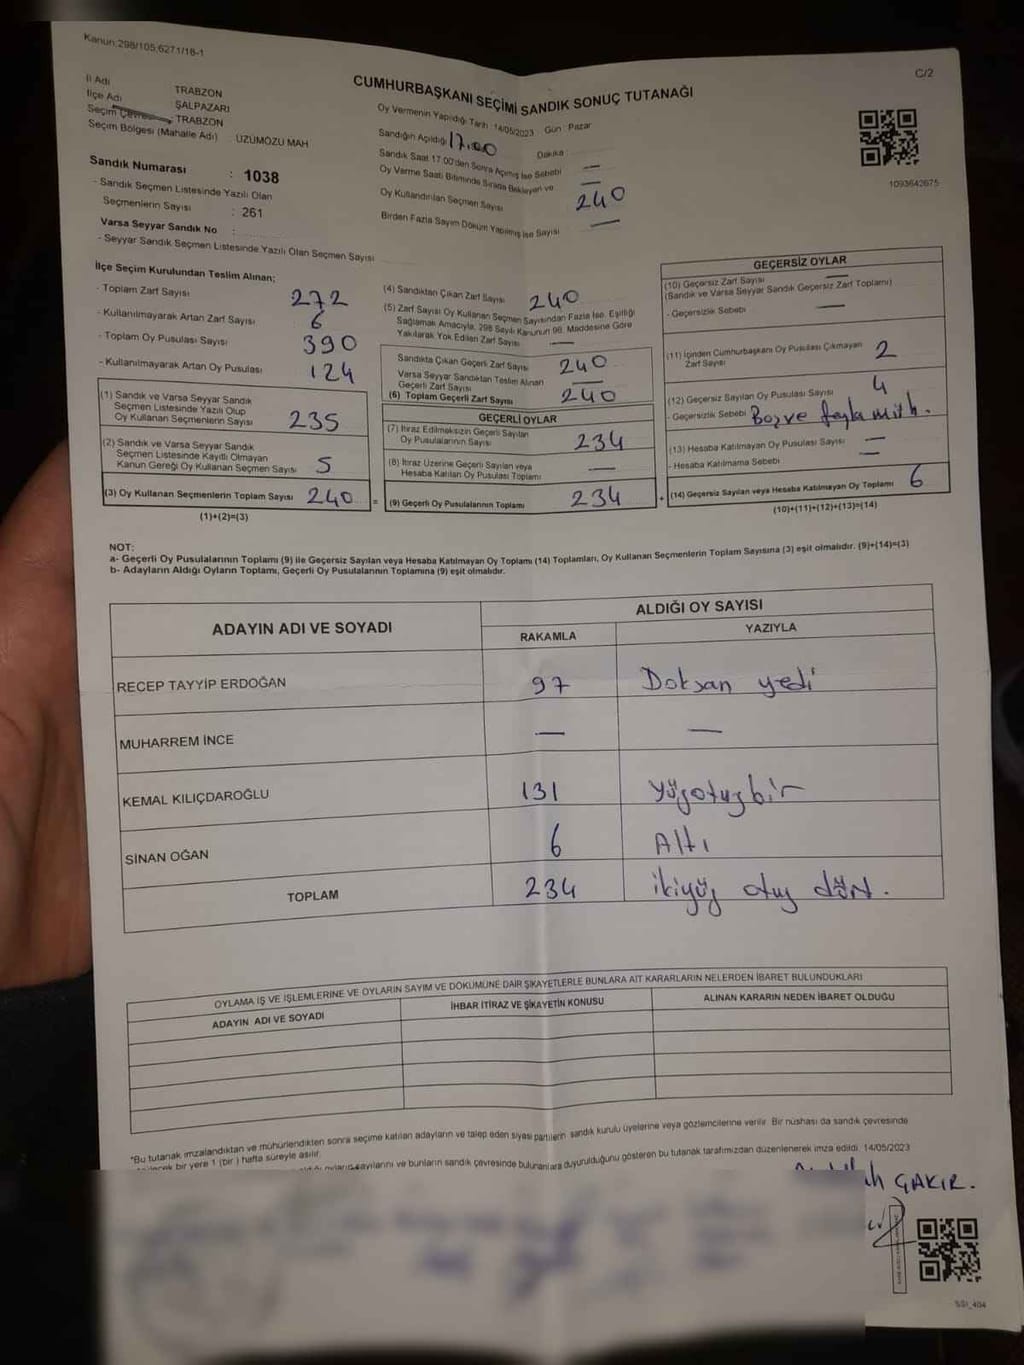 Kanun:298/105,6271/18-1
C/2
CUMHURBAŞKANI SEÇİMİ SANDIK SONUÇ TUTANAĞI
İl Adı : TRABZON
İlçe Adı : ŞALPAZARI
Seçim Çevresi : TRABZON
Seçim Bölgesi (Mahalle Adı) : ÜZÜMÖZÜ MAH
Oy Vermenin Yapıldığı Tarih : 14/05/2023 Gün : Pazar
Sandığın Açıldığı 17.00 Dakika :
Sandık Saat 17.00'den Sonra Açılmış İse Sebebi —
Oy Verme Saati Bitiminde Sırada Bekleyen ve —
Oy Kullandırılan Seçmen Sayısı 240
Birden Fazla Sayım Döküm Yapılmış İse Sayısı —
1093642675
Sandık Numarası : 1038
- Sandık Seçmen Listesinde Yazılı Olan
Seçmenlerin Sayısı : 261
Varsa Seyyar Sandık No :
- Seyyar Sandık Seçmen Listesinde Yazılı Olan Seçmen Sayısı
İlçe Seçim Kurulundan Teslim Alınan;
- Toplam Zarf Sayısı 272
- Kullanılmayarak Artan Zarf Sayısı 6
- Toplam Oy Pusulası Sayısı 390
- Kullanılmayarak Artan Oy Pusulası 124
(1) Sandık ve Varsa Seyyar Sandık
Seçmen Listesinde Yazılı Olup
Oy Kullanan Seçmenlerin Sayısı 235
(2) Sandık ve Varsa Seyyar Sandık
Seçmen Listesinde Kayıtlı Olmayan
Kanun Gereği Oy Kullanan Seçmen Sayısı 5
(3) Oy Kullanan Seçmenlerin Toplam Sayısı 240 =
(1)+(2)=(3)
(4) Sandıktan Çıkan Zarf Sayısı 240
(5) Zarf Sayısı Oy Kullanan Seçmen Sayısından Fazla İse, Eşitliği
Sağlamak Amacıyla, 298 Sayılı Kanunun 98. Maddesine Göre
Yakılarak Yok Edilen Zarf Sayısı —
Sandıkta Çıkan Geçerli Zarf Sayısı 240
Varsa Seyyar Sandıktan Teslim Alınan
Geçerli Zarf Sayısı —
(6) Toplam Geçerli Zarf Sayısı 240
GEÇERLİ OYLAR
(7) İtiraz Edilmeksizin Geçerli Sayılan
Oy Pusulalarının Sayısı 234
(8) İtiraz Üzerine Geçerli Sayılan veya
Hesaba Katılan Oy Pusulası Toplamı —
(9) Geçerli Oy Pusulalarının Toplamı 234 +
GEÇERSİZ OYLAR
(10) Geçersiz Zarf Sayısı —
(Sandık ve Varsa Seyyar Sandık Geçersiz Zarf Toplamı)
- Geçersizlik Sebebi —
(11) İçinden Cumhurbaşkanı Oy Pusulası Çıkmayan
Zarf Sayısı 2
(12) Geçersiz Sayılan Oy Pusulası Sayısı 4
- Geçersizlik Sebebi Boş ve fazla müh.
(13) Hesaba Katılmayan Oy Pusulası Sayısı —
- Hesaba Katılmama Sebebi —
(14) Geçersiz Sayılan veya Hesaba Katılmayan Oy Toplamı 6
(10)+(11)+(12)+(13)=(14)
NOT:
a- Geçerli Oy Pusulalarının Toplamı (9) ile Geçersiz Sayılan veya Hesaba Katılmayan Oy Toplamı (14) Toplamları, Oy Kullanan Seçmenlerin Toplam Sayısına (3) eşit olmalıdır. (9)+(14)=(3)
b- Adayların Aldığı Oyların Toplamı, Geçerli Oy Pusulalarının Toplamına (9) eşit olmalıdır.
ADAYIN ADI VE SOYADI
ALDIĞI OY SAYISI
RAKAMLA YAZIYLA
RECEP TAYYİP ERDOĞAN 97 Doksan yedi
MUHARREM İNCE — —
KEMAL KILIÇDAROĞLU 131 Yüzotuzbir
SİNAN OĞAN 6 Altı
TOPLAM 234 ikiyüz otuz dört.
OYLAMA İŞ VE İŞLEMLERİNE VE OYLARIN SAYIM VE DÖKÜMÜNE DAİR ŞİKAYETLERLE BUNLARA AİT KARARLARIN NELERDEN İBARET BULUNDUKLARI
ADAYIN ADI VE SOYADI İHBAR İTİRAZ VE ŞİKAYETİN KONUSU ALINAN KARARIN NEDEN İBARET OLDUĞU
*Bu tutanak imzalandıktan ve mühürlendikten sonra seçime katılan adayların ve talep eden siyasi partilerin sandık kurulu üyelerine veya gözlemcilerine verilir. Bir nüshası da sandık çevresinde
bir yere 1 (bir) hafta süreyle asılır.
sayılarını ve bunların sandık çevresinde bulunanlara duyurulduğunu gösteren bu tutanak tarafımızdan düzenlenerek imza edildi. 14/05/2023
ÇAKIR.
SSI_404